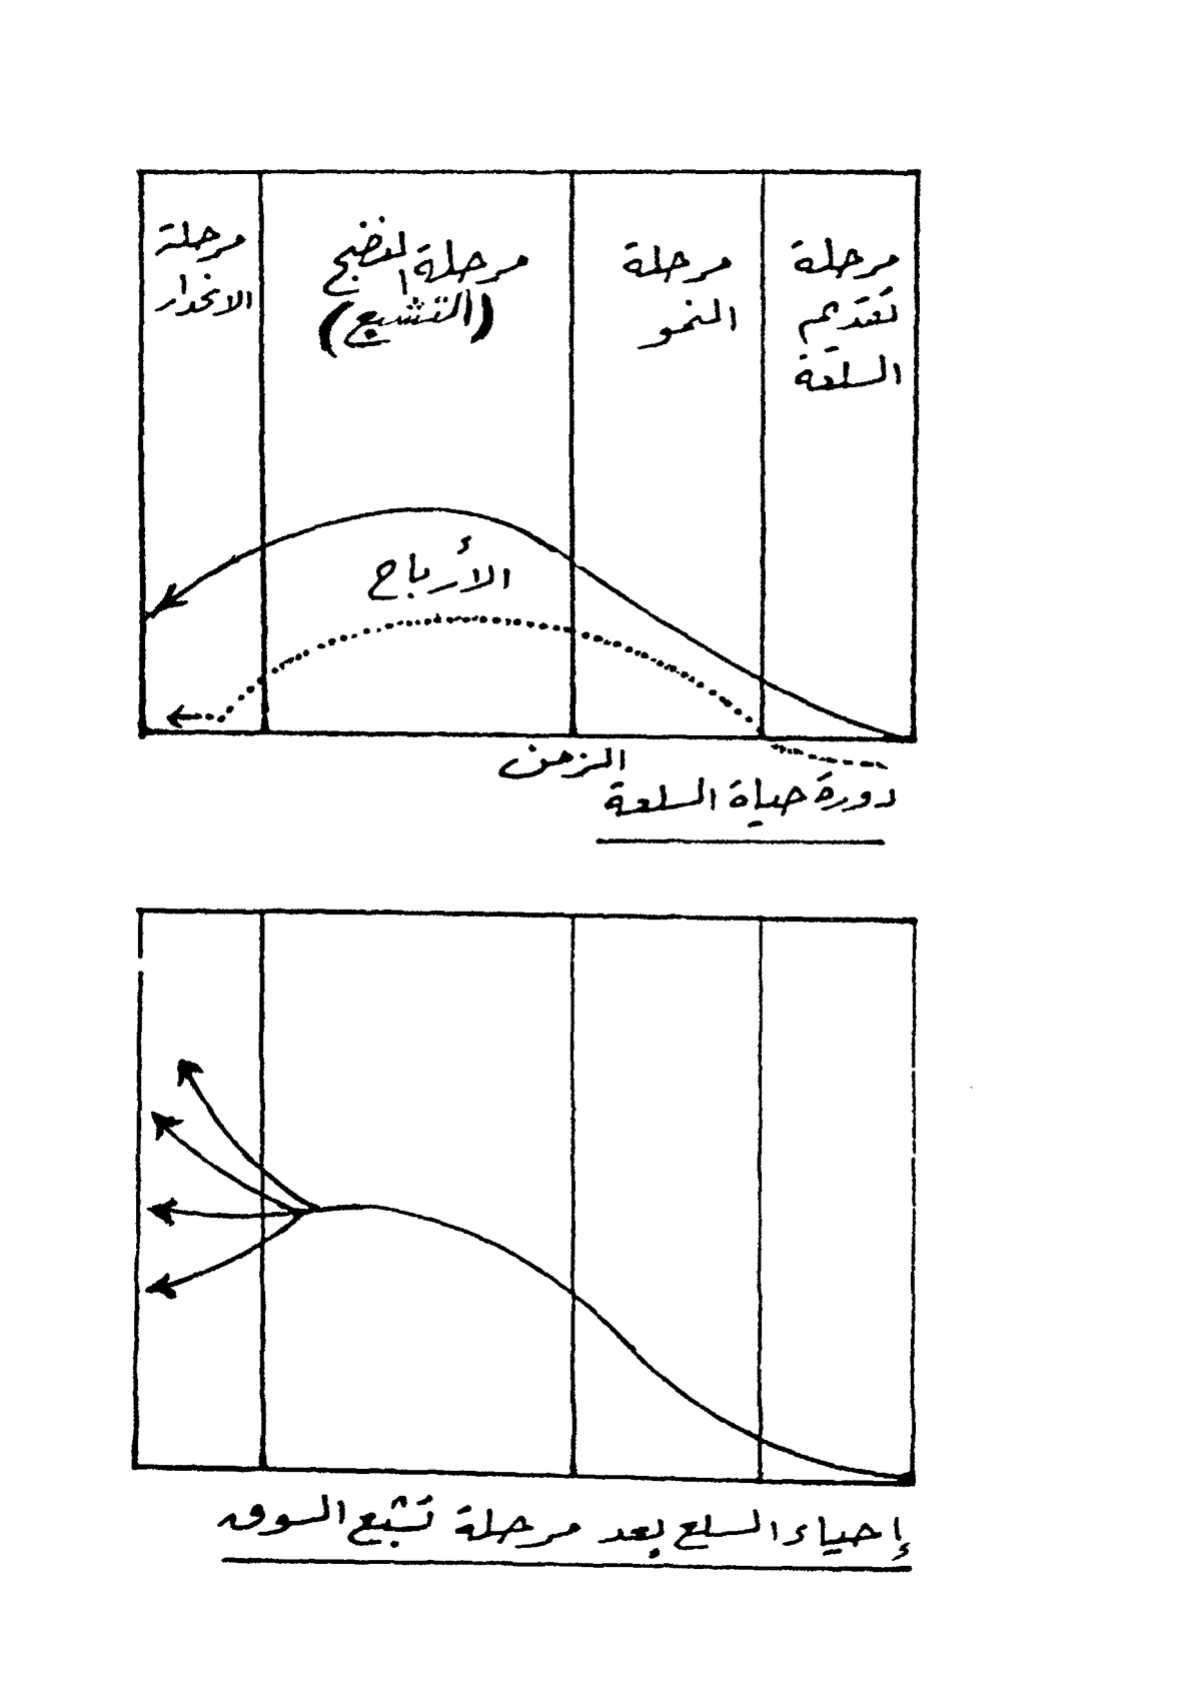 مرحلة
تقديم
السلعة
مرحلة
النمو
مرحلة النضج
(التشبع)
مرحلة
الانحدار
الأرباح
الزمن
دورة حياة السلعة
إحياء السلع بعد مرحلة تشبع السوق